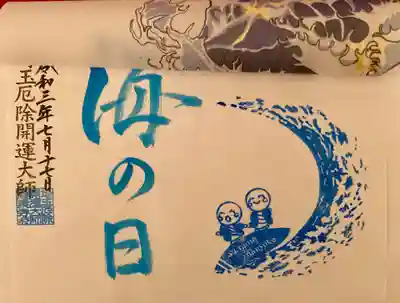 海の日
令和三年七月十七日
玉厄除開運大師